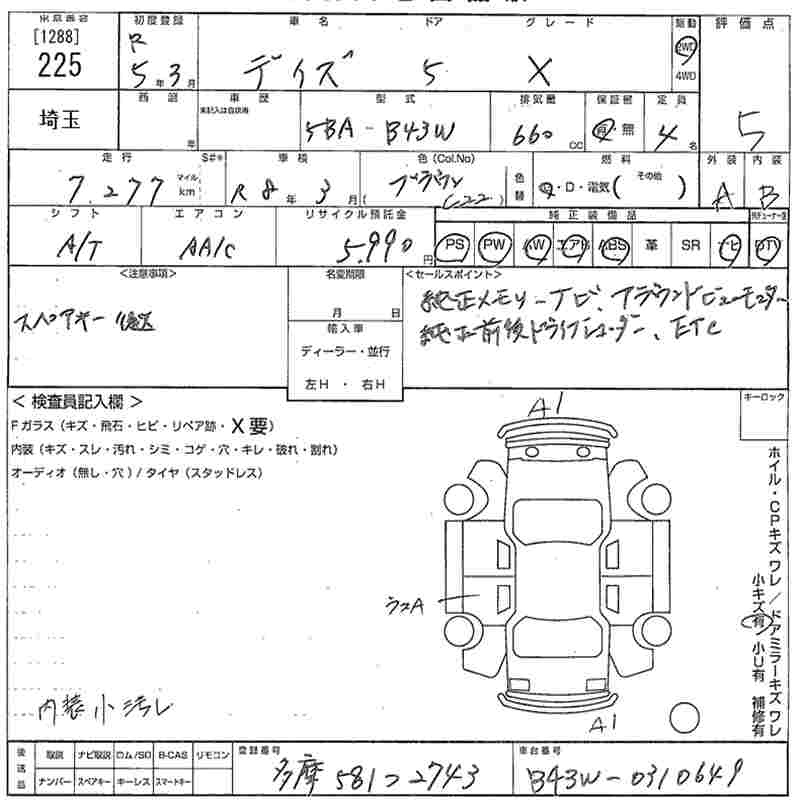 東京番号 初度登録 車名 ドア グレード 駆動 評価点
[1288] R 2WD
225 5年3月 デイズ 5 X 4WD
西暦 車歴 型式 排気量 保証書 定員
埼玉 未記入は自家用 5
年 5BA-B43W 660cc 有・無 4名
走行 S#* 車検 色(Col.No) 燃料 外装 内装
7.277 マイル km R8年3月 ブラウン (C22) 色替 G・D・電気( その他 ) A B
シフト エアコン リサイクル預託金 純正装備品
A/T AA/C 5.990円 PS PW AW エアB ABS 革 SR ナビ DTV
<注意事項> 名変期限 <セールスポイント>
スペアキー後送 月 日 純正メモリーナビ、アラウンドビューモニター
輸入車 純正前後ドライブレコーダー、ETC
ディーラー・並行
左H ・ 右H
<検査員記入欄> A1 キーロック
Fガラス(キズ・飛石・ヒビ・リペア跡・X要)
内装(キズ・スレ・汚れ・シミ・コゲ・穴・キレ・破れ・割れ)
オーディオ(無し・穴)/タイヤ(スタッドレス)
ホイル・CPキズワレ/ドアミラーキズワレ
小キズ有 小U有 補修有
ウスA
内装小汚れ
A1
後送品 取説 ナビ取説 ロム/SD B-CAS リモコン 登録番号 車台番号
ナンバー スペアキー キーレス スマートキー 多摩 581 つ 2743 B43W-0310649